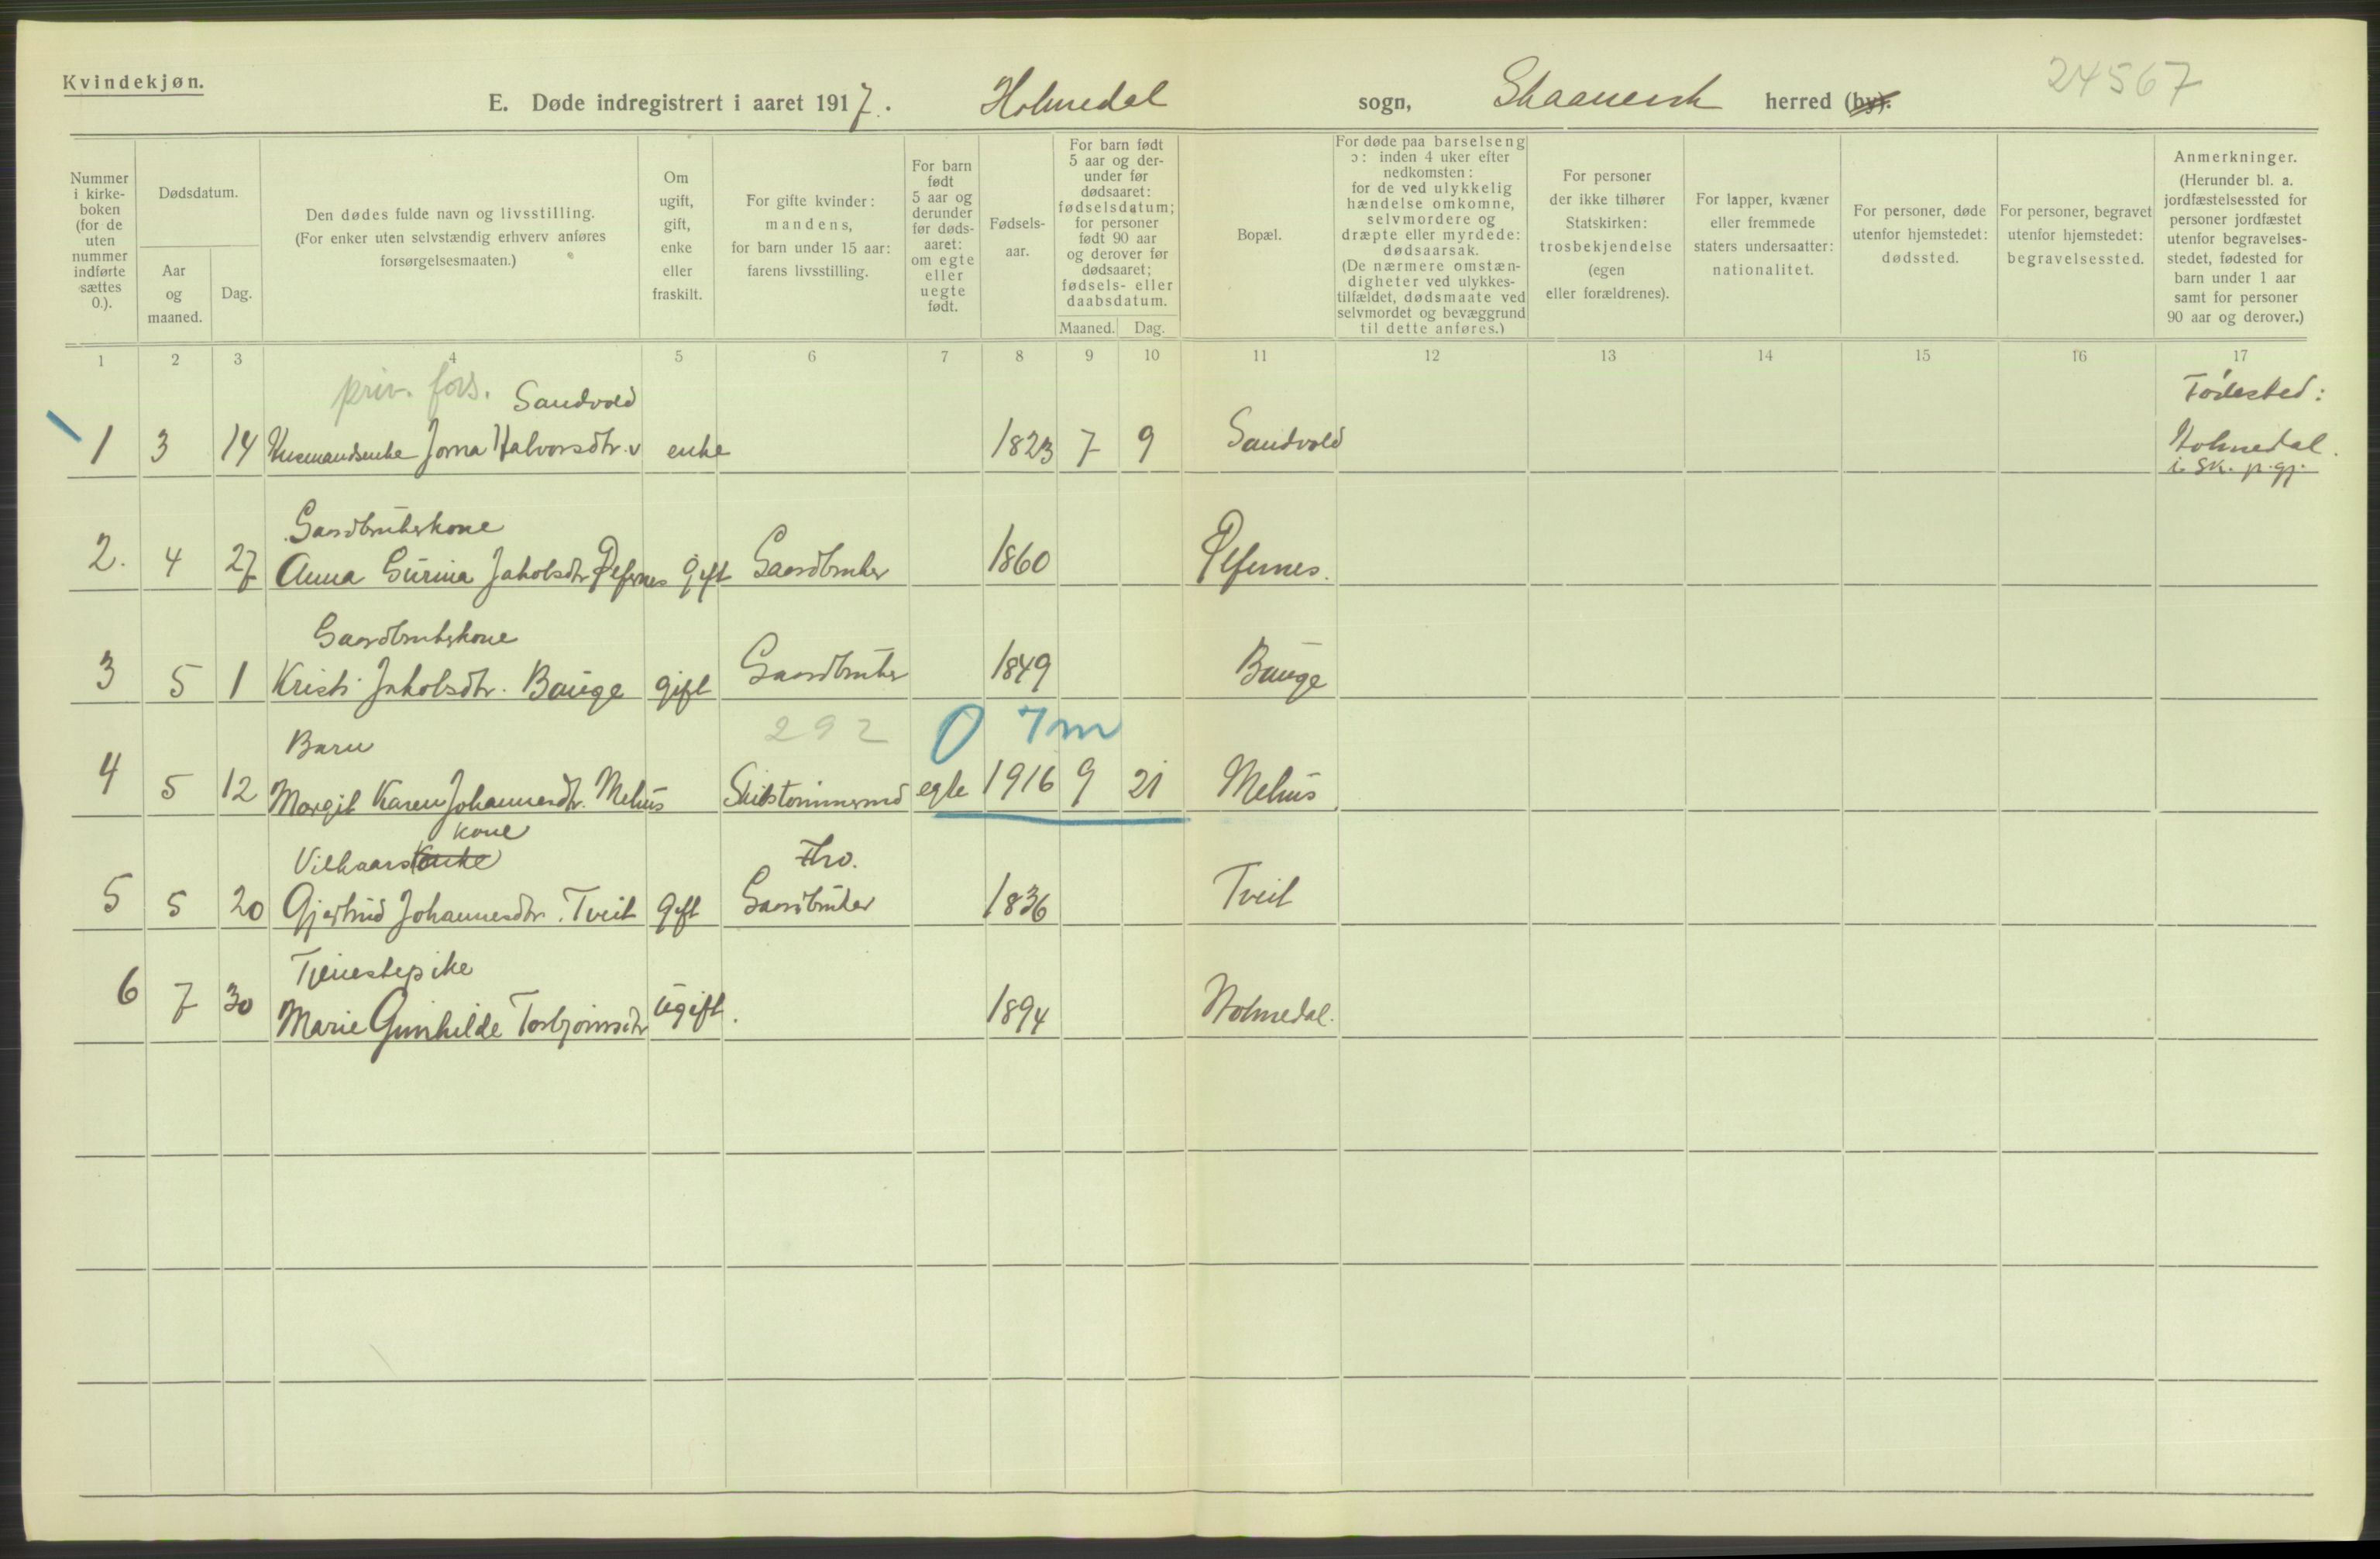 Kvindekjøn.
24567
E. Døde indregistrert i aaret 1917. Holmedal sogn, Skaanevik herred (by).
Nummer i kirke-boken (for de uten nummer indførte sættes 0.).
Dødsdatum.
Aar og maaned.
Dag.
Den dødes fulde navn og livsstilling.
(For enker uten selvstændig erhverv anføres forsørgelsesmaaten.)
Om ugift, gift, enke eller fraskilt.
For gifte kvinder: mandens, for barn under 15 aar: farens livsstilling.
For barn født 5 aar og derunder før døds-aaret: om egte eller uegte født.
Fødsels-aar.
For barn født 5 aar og der-under før dødsaaret: fødselsdatum; for personer født 90 aar og derover før dødsaaret; fødsels- eller daabsdatum.
Maaned. Dag.
Bopæl.
For døde paa barselseng ɔ: inden 4 uker efter nedkomsten: for de ved ulykkelig hændelse omkomne, selvmordere og dræpte eller myrdede: dødsaarsak. (De nærmere omstæn-digheter ved ulykkes-tilfældet, dødsmaate ved selvmordet og bevæggrund til dette anføres.)
For personer der ikke tilhører Statskirken: trosbekjendelse (egen eller forældrenes).
For lapper, kvæner eller fremmede staters undersaatter: nationalitet.
For personer, døde utenfor hjemstedet: dødssted.
For personer, begravet utenfor hjemstedet: begravelsessted.
Anmerkninger. (Herunder bl. a. jordfæstelsessted for personer jordfæstet utenfor begravelses-stedet, fødested for barn under 1 aar samt for personer 90 aar og derover.)
1 2 3 4 5 6 7 8 9 10 11 12 13 14 15 16 17
priv. fors. Sandvold Fødested:
1 3 14 Husmandsenke Jorna Halvorsdtr. v enke 1823 7 9 Sandvold Holmedal
i. Sk. p.gj.
Gaardbrukerkone
2. 4 27 Anna Gurina Jakobsdtr Ølfernes gift Gaardbruker 1860 Ølfernes.
Gaardbrukerkone
3 5 1 Kristi Jakobsdtr. Bauge gift Gaardbruker 1849 Bauge
Barn 292 0 7m
4 5 12 Margit Karen Johannesdtr. Mehus Skibstømmermd egte 1916 9 21 Mehus
kone
Vilkaarsenke Fhv.
5 5 20 Gjertrud Johannesdtr. Tveit gift Gaardbruker 1836 Tveit
Tjenestepike
6 7 30 Marie Gunhilde Torbjørnsdtr ugift. 1894 Holmedal.